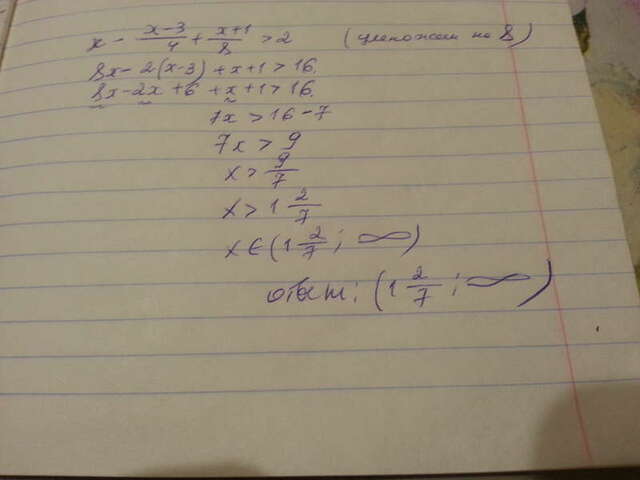 x - (x-3)/4 + (x+1)/8 > 2 (умножим на 8)
8x - 2(x-3) + x + 1 > 16.
8x - 2x + 6 + x + 1 > 16.
7x > 16 - 7
7x > 9
x > 9/7
x > 1 2/7
x ∈ (1 2/7 ; ∞)
ответ: (1 2/7 ; ∞)